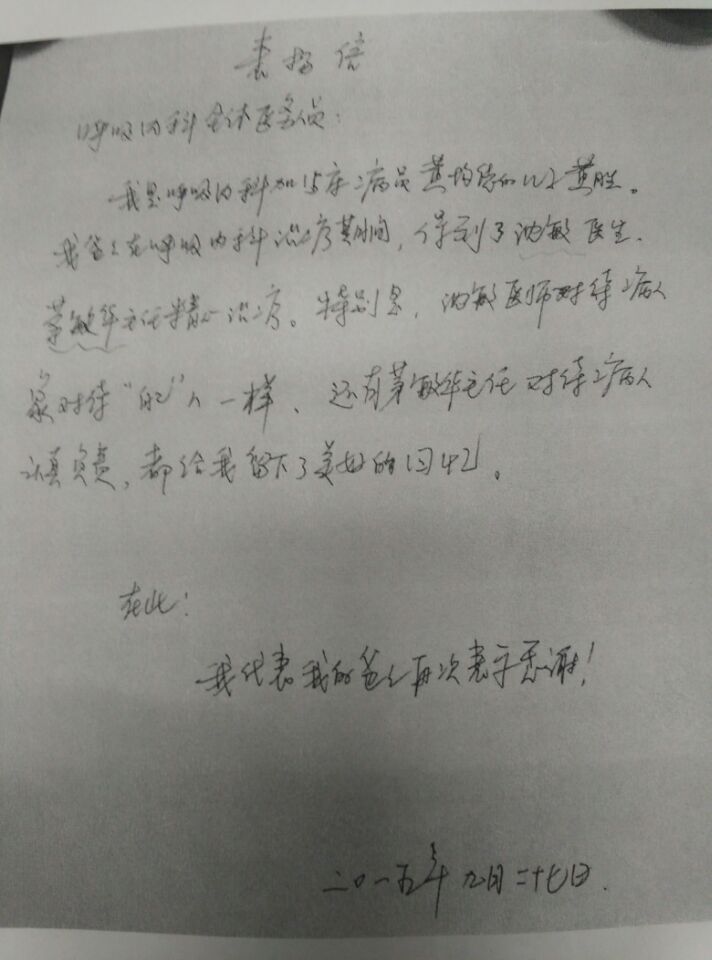 表扬信
呼吸内科全体医务人员:
我是呼吸内科加15床病员黄均德的儿子黄胜。
我爸爸在呼吸内科治疗其间,得到了沈敏医生、
茅敏华主任精心治疗。特别是,沈敏医师对待病人
象对待“自己”人一样、还有茅敏华主任对待病人
认真负责,都给我留下了美好的回忆。
在此:
我代表我的爸爸再次表示感谢!
二〇一五年九月二十七日.